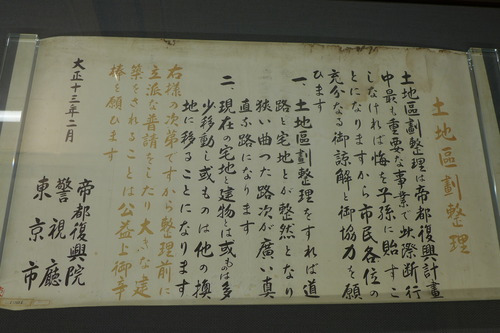 土地區劃整理
土地區劃整理は帝都復興計畫
中最も重要な事業で此際断行
しなければ悔を子孫に貽すこ
とになりますから市民各位の
充分なる御諒解と御協力を願
ひます
一、土地區劃整理をすれば道
路と宅地とが整然となり
狭い曲つた路次が廣い真
直ぶ路になります
二、現在の宅地と建物は或ものは多
少移動し或ものは他の換
地に移ることになります
右様の次第ですから整理前に
立派な普請をしたり大きい建
築をされることは公益上御辛
棒を願ひます
大正十三年二月
帝都復興院
警視廳
東京市